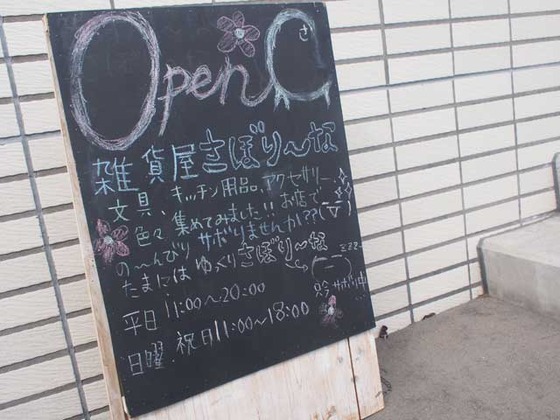 Open
さ
雑貨屋さぼり〜な
文具、キッチン用品、アクセサリー、
色々 集めてみました!! お店で
の〜んびり サボりませんか??
たまには ゆっくり さぼり〜な
只今 サボり中
平日 11:00〜20:00
日曜 祝日 11:00〜18:00